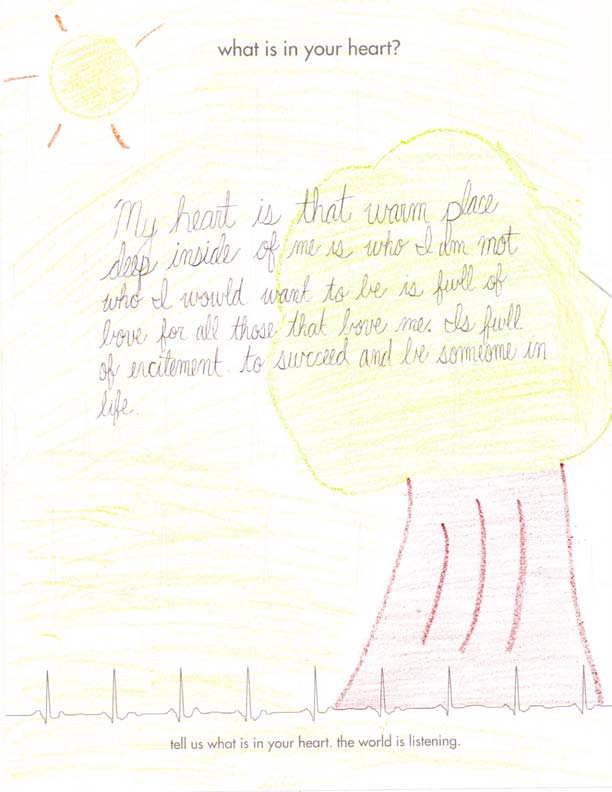 what is in your heart?
"My heart is that warm place
deep inside of me is who I am not
who I would want to be is full of
love for all those that love me. Is full
of excitement. to succeed and be someone in
life.
tell us what is in your heart. the world is listening.